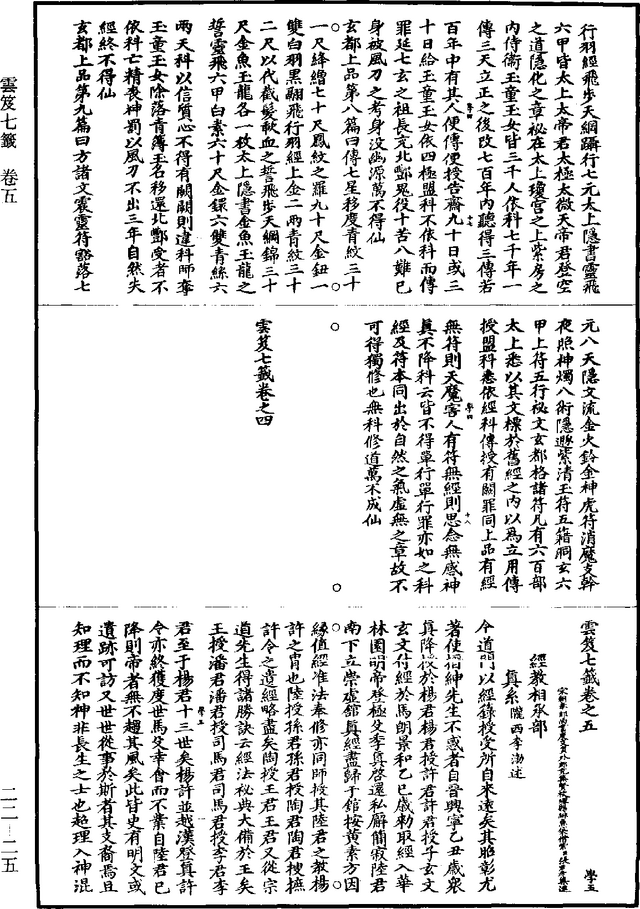 行羽經飛步天綱躡行七元太上隱書靈飛
六甲皆太上太帝君太極太微天帝君登空
之道隱化之章祕在太上瓊宮之上紫房之
內侍衛玉童玉女皆三千人依科七千年一
傳三天立正之後改七百年內聽得三傳若
百年中有其人便傳便授告齋九十日或三
十日給玉童玉女依四極盟科不依科而傳
罪延七玄之祖長充北酆鬼役十苦八難已
身被風刀之考身沒幽源萬不得仙
玄都上品第八篇曰傳七星移度青紋三十
一尺絳繒七十尺鳳紋之羅九十尺金鈕一
雙白羽黑翮飛行羽經上金二兩青紋三十
二尺以代截髮歃血之誓飛步天綱錦三十
尺金魚玉龍各一枚太上隱書金魚玉龍之
誓靈飛六甲白素六十尺金鐶六雙青絲六
兩天科以信質心不得有闕闕則違科師奪
玉童玉女除落青簿玉名移還北酆受者不
依科亡精喪神罰以風刀不出三年自然失
經終不得仙
玄都上品第九篇曰方諸文震靈符豁落七
元八天隱文流金火鈴金神虎符消魔支幹
夜照神燭八術隱遯紫清玉符五籍洞玄六
甲上符五行祕文玄都格諸符凡有六百部
太上悉以其文標於舊經之內以爲立用傳
授盟科悉依經科傳授有闕罪同上品有經
無符則天魔害人有符無經則思念無感神
眞不降科云皆不得單行單行罪亦如之科
經及符本同出於自然之氣虛無之章故不
可得獨修也無科修道萬不成仙
雲笈七籤卷之四
雲笈七籤卷之五
學五
經教相承部
眞系 隴西李渤述
今道門以經籙授受所自來遠矣其昭彰尤
著使搢紳先生不惑者自晉興寧乙丑歲衆
眞降授於楊君楊君授許君許君授子玄文
玄文付經於馬朗景和乙巳歲勅取經入華
林園明帝登極殳季眞啓還私廨簡寂陸君
南下立崇虛館眞經盡歸于館按黃素方因
緣值經准法奉修亦同師授其陸君之教楊
許之胄也陸授孫君孫君授陶君陶君搜摭
許令之遺經略盡矣陶授王君王君又從宗
道先生得諸勝訣云經法祕典大備於王矣
王授潘君潘君授司馬君司馬君授李君李
君至于楊君十三世矣楊許並越漢登眞許
令亦終獲度世馬殳幸會而不業自陸君已
降則帝者無不趨其風矣此皆史有明文或
遺跡可訪又世世從事於斯者其支裔焉且
知理而不知神非長生之士也超理入神混
雲笈七籤 卷五
二二—二五